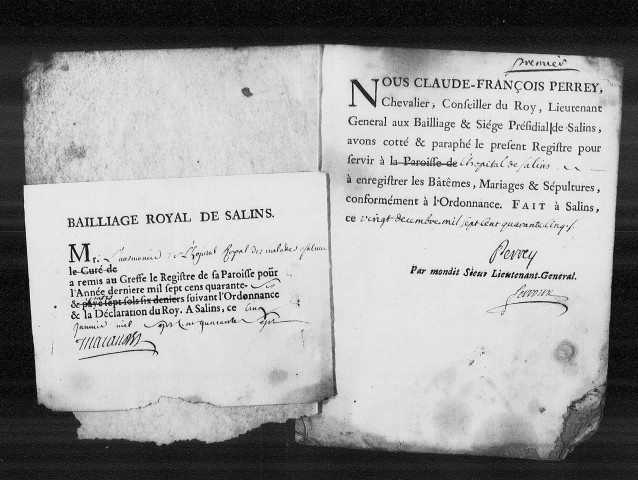 BAILLIAGE ROYAL DE SALINS.
Mr. l'aumonier de l'hopital Royal des malades
le Curé de
a remis au Greffe le Registre de sa Paroisse pour
l'Année derniere mil sept cens quarante-six
& payé sept sols six deniers suivant l'Ordonnance
& la Déclaration du Roy. A Salins, ce cinq
janvier mil sept cent quarante sept
premier
NOUS CLAUDE-FRANÇOIS PERREY,
Chevalier, Conseiller du Roy, Lieutenant
General aux Bailliage & Siége Présidial de Salins,
avons cotté & paraphé le present Registre pour
servir à la Paroisse de l'hopital de salins
à enregistrer les Bâtêmes, Mariages & Sépultures,
conformément à l'Ordonnance. FAIT à Salins,
ce vingt decembre mil sept cent quarante cinq
Perrey
Par mondit Sieur Lieutenant-General.